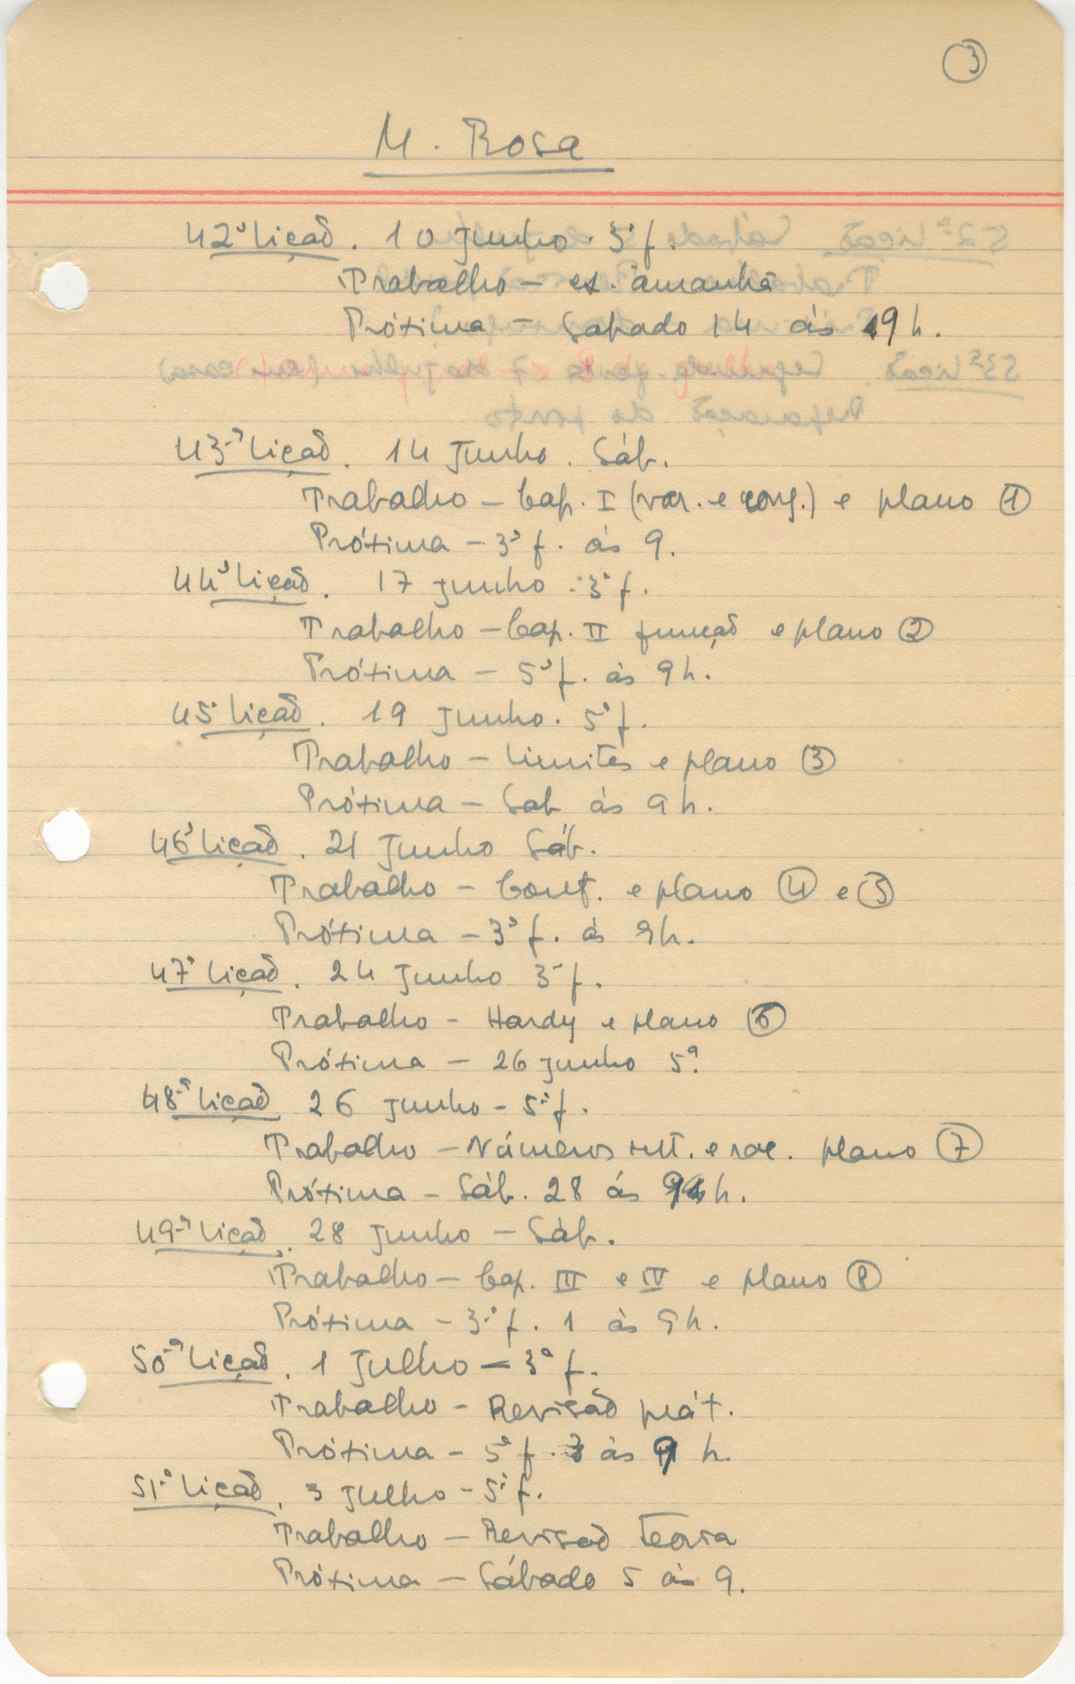 3
M. Rosa
42ª Lição. 10 Junho. 3ª f.
Trabalho – ex. amanhã
Próxima – Sabado 14 ás 9 h.
43.ª Lição. 14 Junho. Sáb.
Trabalho – Cap. I (var. e conj.) e plano 1
Próxima – 3ª f. ás 9.
44ª Lição. 17 Junho. 3ª f.
Trabalho – Cap. II função e plano 2
Próxima – 5ª f. ás 9 h.
45ª Lição. 19 Junho. 5ª f.
Trabalho – Limites e plano 3
Próxima – Sab ás 9 h.
46ª Lição. 21 Junho Sáb.
Trabalho – Cont. e plano 4 e 5
Próxima – 3ª f. ás 9h.
47ª Lição. 24 Junho 3ª f.
Trabalho – Hardy e plano 6
Próxima – 26 junho 5ª
48.ª Lição 26 Junho – 5.ª f.
Trabalho – Números e rac. plano 7
Próxima – Sáb. 28 ás h.
49.ª Lição. 28 Junho – Sáb.
Trabalho – Cap. III e IV e plano 8
Próxima – 3.ª f. 1 ás 9h.
50.ª Lição. 1 Julho – 3ª f.
Trabalho – Revisão prát.
Próxima – 5ª f. 3 ás 9 h.
51.ª Lição. 3 Julho – 5.ª f.
Trabalho – Revisão Teoria
Próxima – Sábado 5 ás 9.